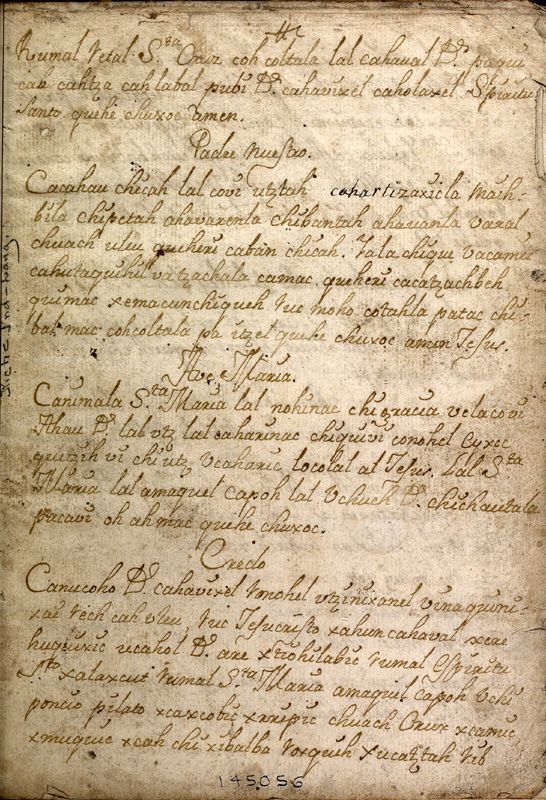 Rumal Retal S.ta Cruz coh coltala lal cahaual D.s pa qui
cah cahtza cah labal pubi D.s cahavixel caholaxel Spiritu
santo quehe chuxoc amen.
Padre nuestro.
Cacahau chicah lal covi utztah cahartizaxicla maih-
bila chipetah ahavarenla chibantah ahauanla varal
chuach uleu queheri caban chicah. Yala chique vacamic
cahutaquihil va tzachala camac queheri cacatzachbeh
quimac xemacunchiqueh ruc moho cotahla patac chi-
bal mac cohcoltala pa itzel quehe chuxoc amen Jesus.
Ave Maria.
Canimala S.ta Maria lal nohinac chi gracia vela covi
Ahau D.s lal utz lal caharinac chiquivi conohel Cyxoc
quitzih vi chi utz Vcaharic locolal al Jesus. Lal S.ta
Maria lal amaquel capoh lal Vchuch D.s chichautala
pacavi oh ah mac quehe chuxoc.
Credo
Canucoho D.s cahavixel ronohel utzinixanel vinaquini-
xae rech cah uleu, ruc Jesucristo xahun cahaval xere
huquixic ucahol D.s are xtiohilabic rumal Espiritu
S.to xalaxcut rumal S.ta Maria amaquel capoh Vchi
poncio pilato xcaxcobic xrripic chuach Crux xcamic
xmuquic xcah chi xibalba roxquih xucaztah rib
145056